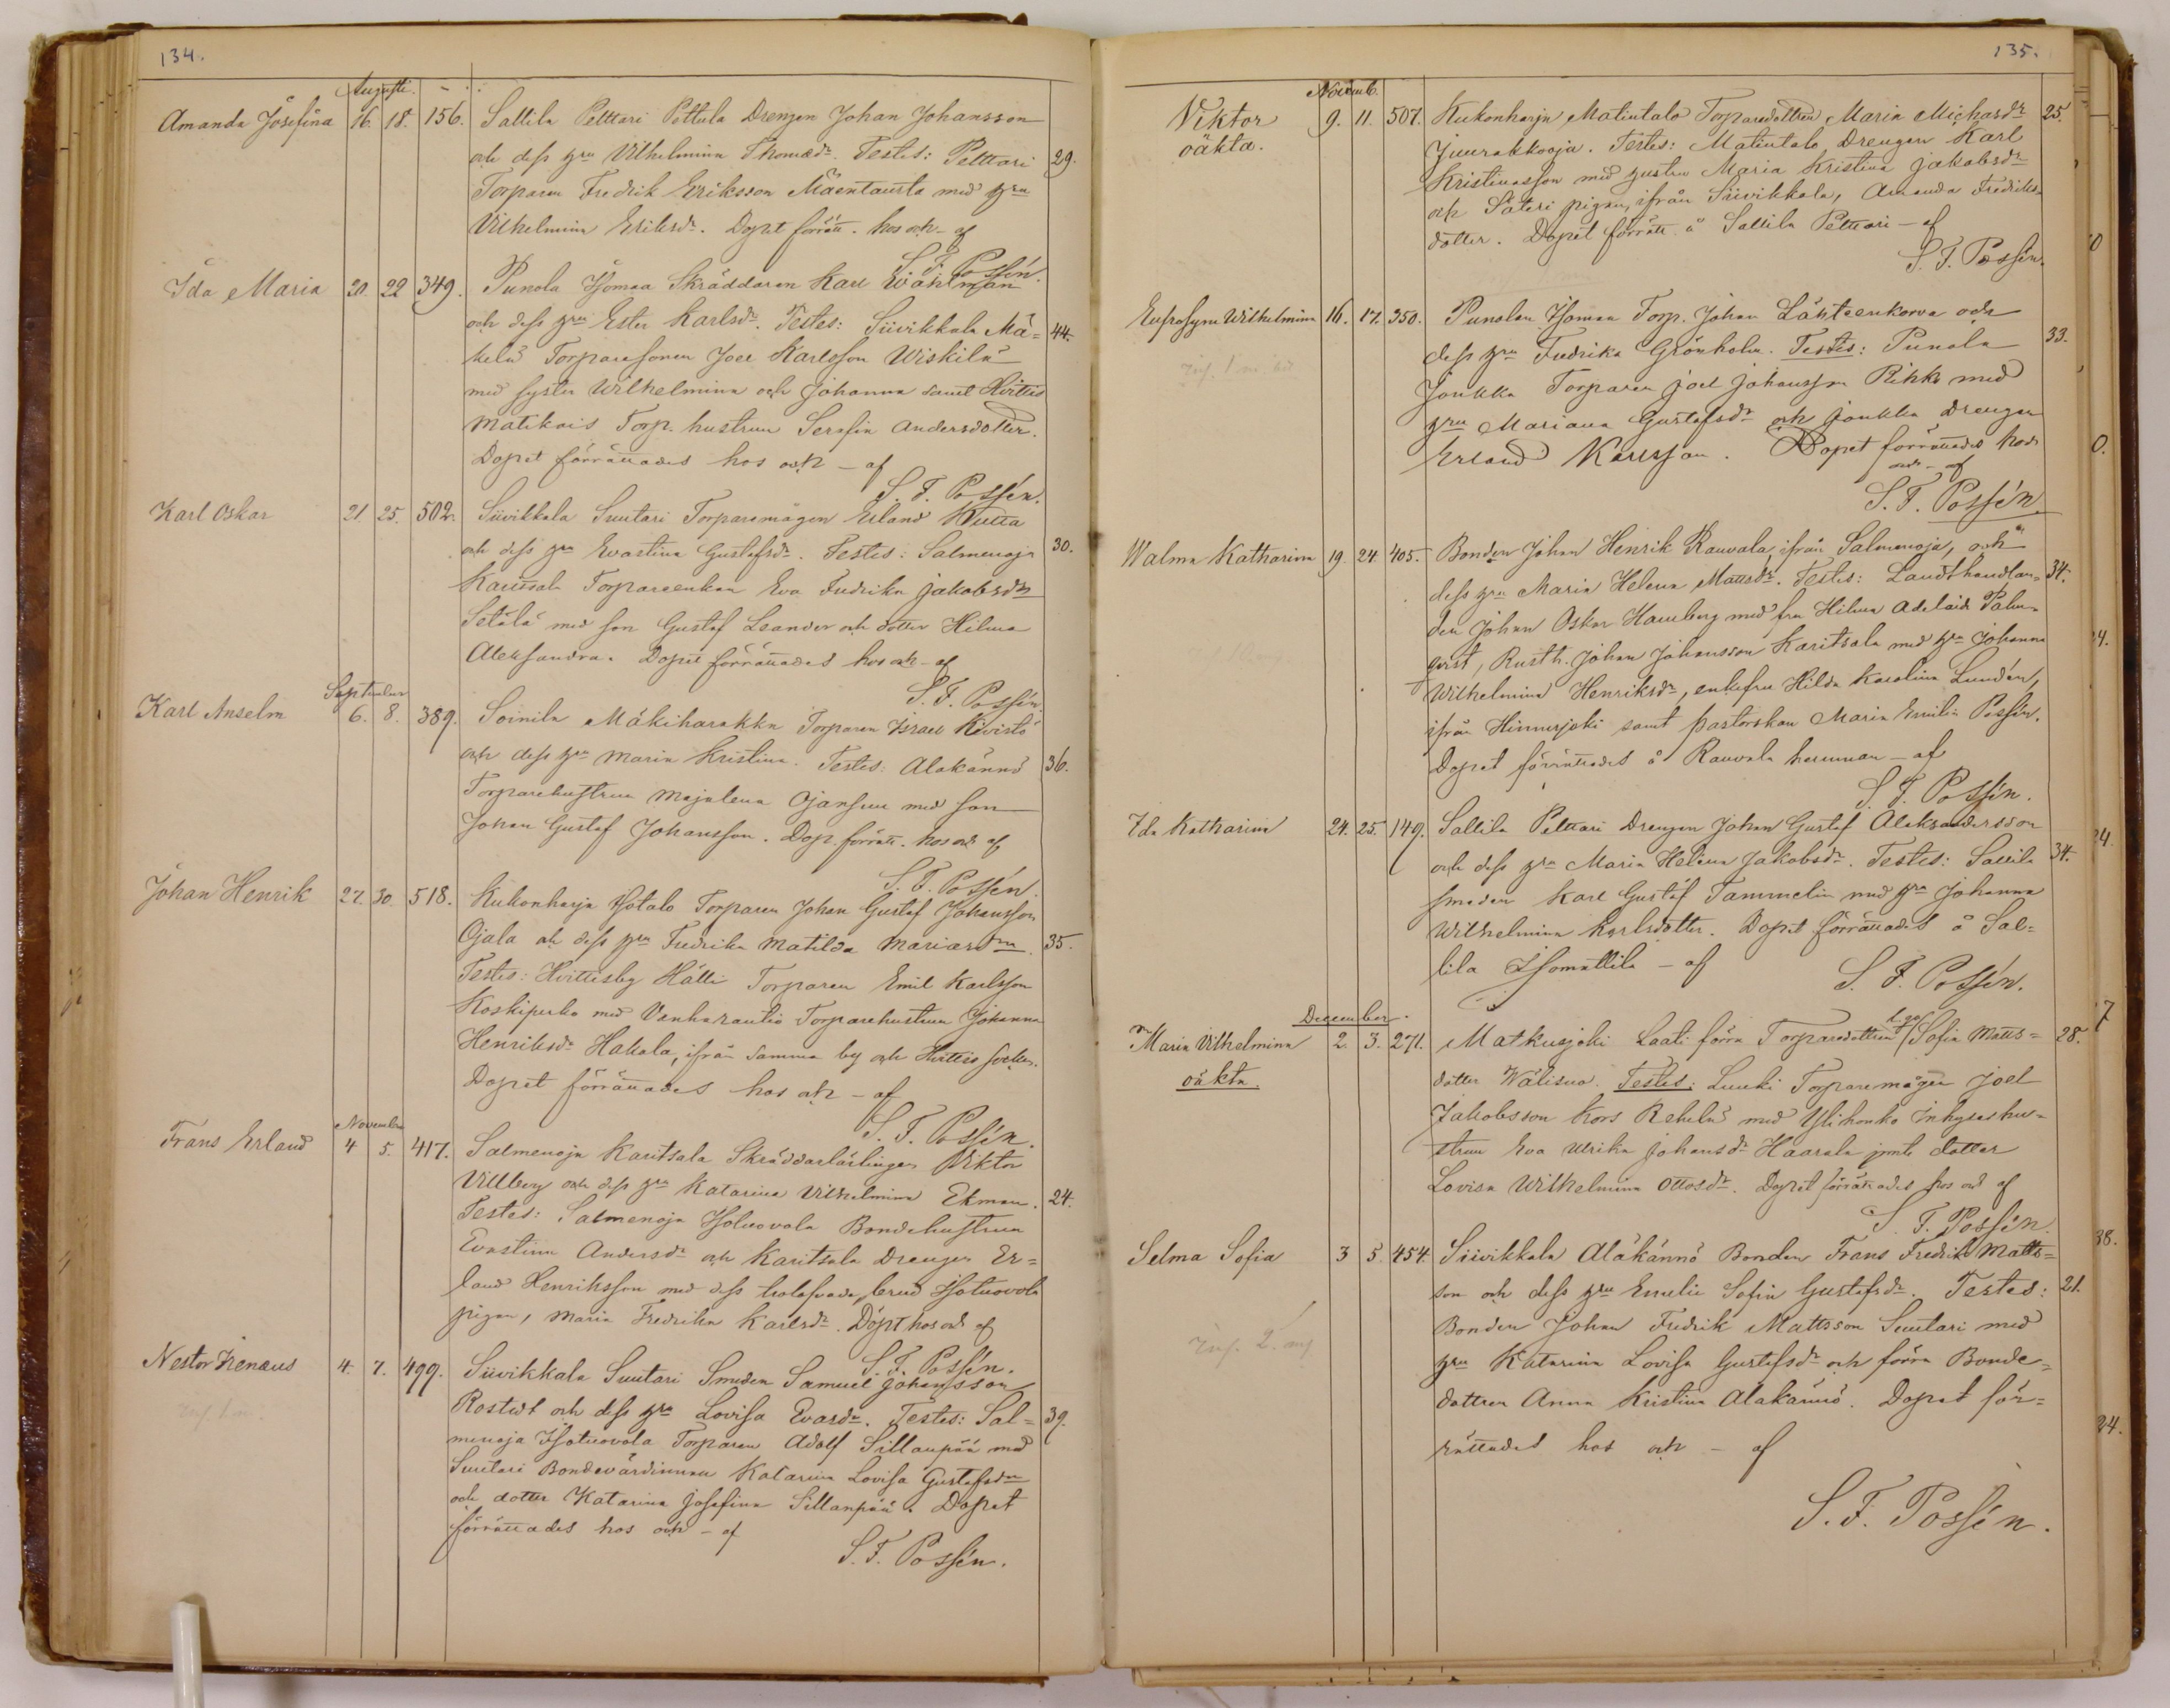 134.
Augusti.
Amanda Josefina 16. 18. 156. Sallila Pelttari Pottula Drengen Johan Johansson
och dess hru Vilhelmina Thomasdr. Testes: Pelttari 29.
Torparen Fredrik Eriksson Mäentausta med hru
Vilhelmina Eriksdr. Dopet förrätt. hos och - af
S. F. Possén.
Ida Maria 20. 22 349. Punola Isomaa Skräddaren Karl Wahlman
och dess hru Ester Karlsdr. Testes: Siivikkala Mä= 44.
kelä Torparesonen Joel Karlsson Wiskilä
med syster Wilhelmina och Johanna samt Hvittis
Matikais Torp. hustrun Serafia Andersdotter.
Dopet förrättades hos och - af
S. F. Possén.
Karl Oskar 21 25. 502. Siivikkala Suutari Torparemågen Erland
och dess hru Evastina Gustafsdr. Testes: Salmenoja 30.
Torpareenkan Eva Fredrika Jakobsdr
Setälä med son Gustaf Leander och dotter Hilma
Aleksandra. Dopet förrättades hos och - af
S. F. Possén.
September
Karl Anselm 6. 8. 389. Soinila Mäkiharakka Torparen Israel Kivistö
och dess hru Maria Kristina. Testes: Alakännö 36.
Torparehustrun Majalena Ojansuu med son
Johan Gustaf Johansson. Dop. förrätt. hos och af
S. F. Possén.
Johan Henrik 27. 30. 518. Kukonharja Isotalo Torparen Johan Gustaf Johansson
Ojala och dess hru Fredrika Matilda Mariasdr. 35.
Testes: Hvittisby Hälli Torparen Emil Karlsson
Koskiperko med Vanharautio Torparehustrun Johanna
Henriksdr Hakala, ifrån samma by och Hvittis socken.
Dopet förrättades hos och - af
S. F. Possén.
November
Frans Erland 4 5. 417. Salmenoja Karitsala Skräddarlärlingen Viktor
Villberg och dess hru Katarina Vilhelmina Ekman. 24.
Testes: Salmenoja Isotuovola Bondehustrun
Evastina Andersdr och Karitsala Drengen Er=
land Henriksson med dess trolofvade brud Isotuovola
pigan, Maria Fredrika Karlsdr. Döpt hos och af
S. F. Possén.
Nestor Irenæus 4. 7. 499. Siivikkala Suutari Smeden Samuel Johansson
Rostedt och dess hru Lovisa Evardr. Testes: Sal= 39.
menoja Isotuovola Torparen Adolf Sillanpää med
Suutari Bondevärdinnan Katarina Lovisa Gustafsdr
och dotter Katarina Josefina Sillanpää. Dopet
förrättades hos och - af
S. F. Possén.
135.
Novemb.
Viktor 9. 11. 507. Kukonharja Matintalo Torparedottren Maria Michasdr 25.
oäkta. Juurakkooja. Testes: Matintalo Drengen Karl
Kristinasson med hustru Maria Kristina Jakobsdr
och Säteri pigan, ifrån Siivikkala, Amanda Fredriks
dotter. Dopet förrätt. å Sallila Pelttari - af
S. F. Possén.
Eufrosyne Wilhelmina 16. 17. 350. Punolan Isomaa Torp. Johan Lähteenkorva och
dess hru Fredrika Grönholm. Testes: Punola 33.
Joukka Torparen Joel Johansson Rihko med
hru Mariana Gustafsdr och Joukka Drengen
Erland Karlsson. Dopet förrättades hos
och - af
S. F. Possén.
Walma Katharina 19. 24. 405. Bonden Johan Henrik Rauvala, ifrån Salmenoja, och
dess hru Maria Helena Mattsdr. Testes: Landthandlan= 34.
den Johan Oskar Hamberg med fru Hilma Adelaide Palm-
qvist, Rusth. Johan Johansson Karitsala med hru Johanna
Wilhelmina Henriksdr, enkefru Hilda Karolina Lundén,
ifrån Hinnerjoki samt pastorskan Maria Emilia Possén.
Dopet förrättades å Rauvala hemman - af
S. F. Possén.
Ida Katharina 24. 25. 149. Sallila Pelttari Drengen Johan Gustaf Aleksandersson
och dess hru Maria Helena Jakobsdr. Testes: Sallila 34.
smeden Karl Gustaf Tammelin med hru Johanna
Wilhelmina Karlsdotter. Dopet förrättades å Sal=
lila Isomällilä - af
S. F. Possén.
December.
Maria Vilhelmina 2. 3. 271. Matkusjoki Laati förra Torparedottren Sofia Matts= 28.
oäkta. dotter Wälisuo. Testes: Luuki Torparemågen Joel
Jakobsson Kors Rekelä med Ylihonko Inhyseshu=
strun Eva Ulrika Johansdr Haarala jemte dotter
Lovisa Wilhelmina Ottosdr. Dopet förrättades hos och af
S. F. Possén.
Selma Sofia 3 5. 454. Siivikkala Alakännö Bonden Frans Fredrik Matts=
son och dess hru Emelie Sofia Gustafsdr. Testes: 21.
Bonden Johan Fredrik Mattsson Suutari med
hru Katarina Lovisa Gustafsdr och förra Bonde=
dottren Anna Kristina Alakännö. Dopet för=
rättades hos och - af
S. F. Possén.